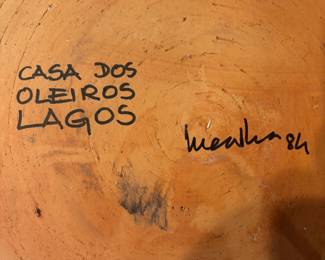 CASA DOS
OLEIROS
LAGOS
84